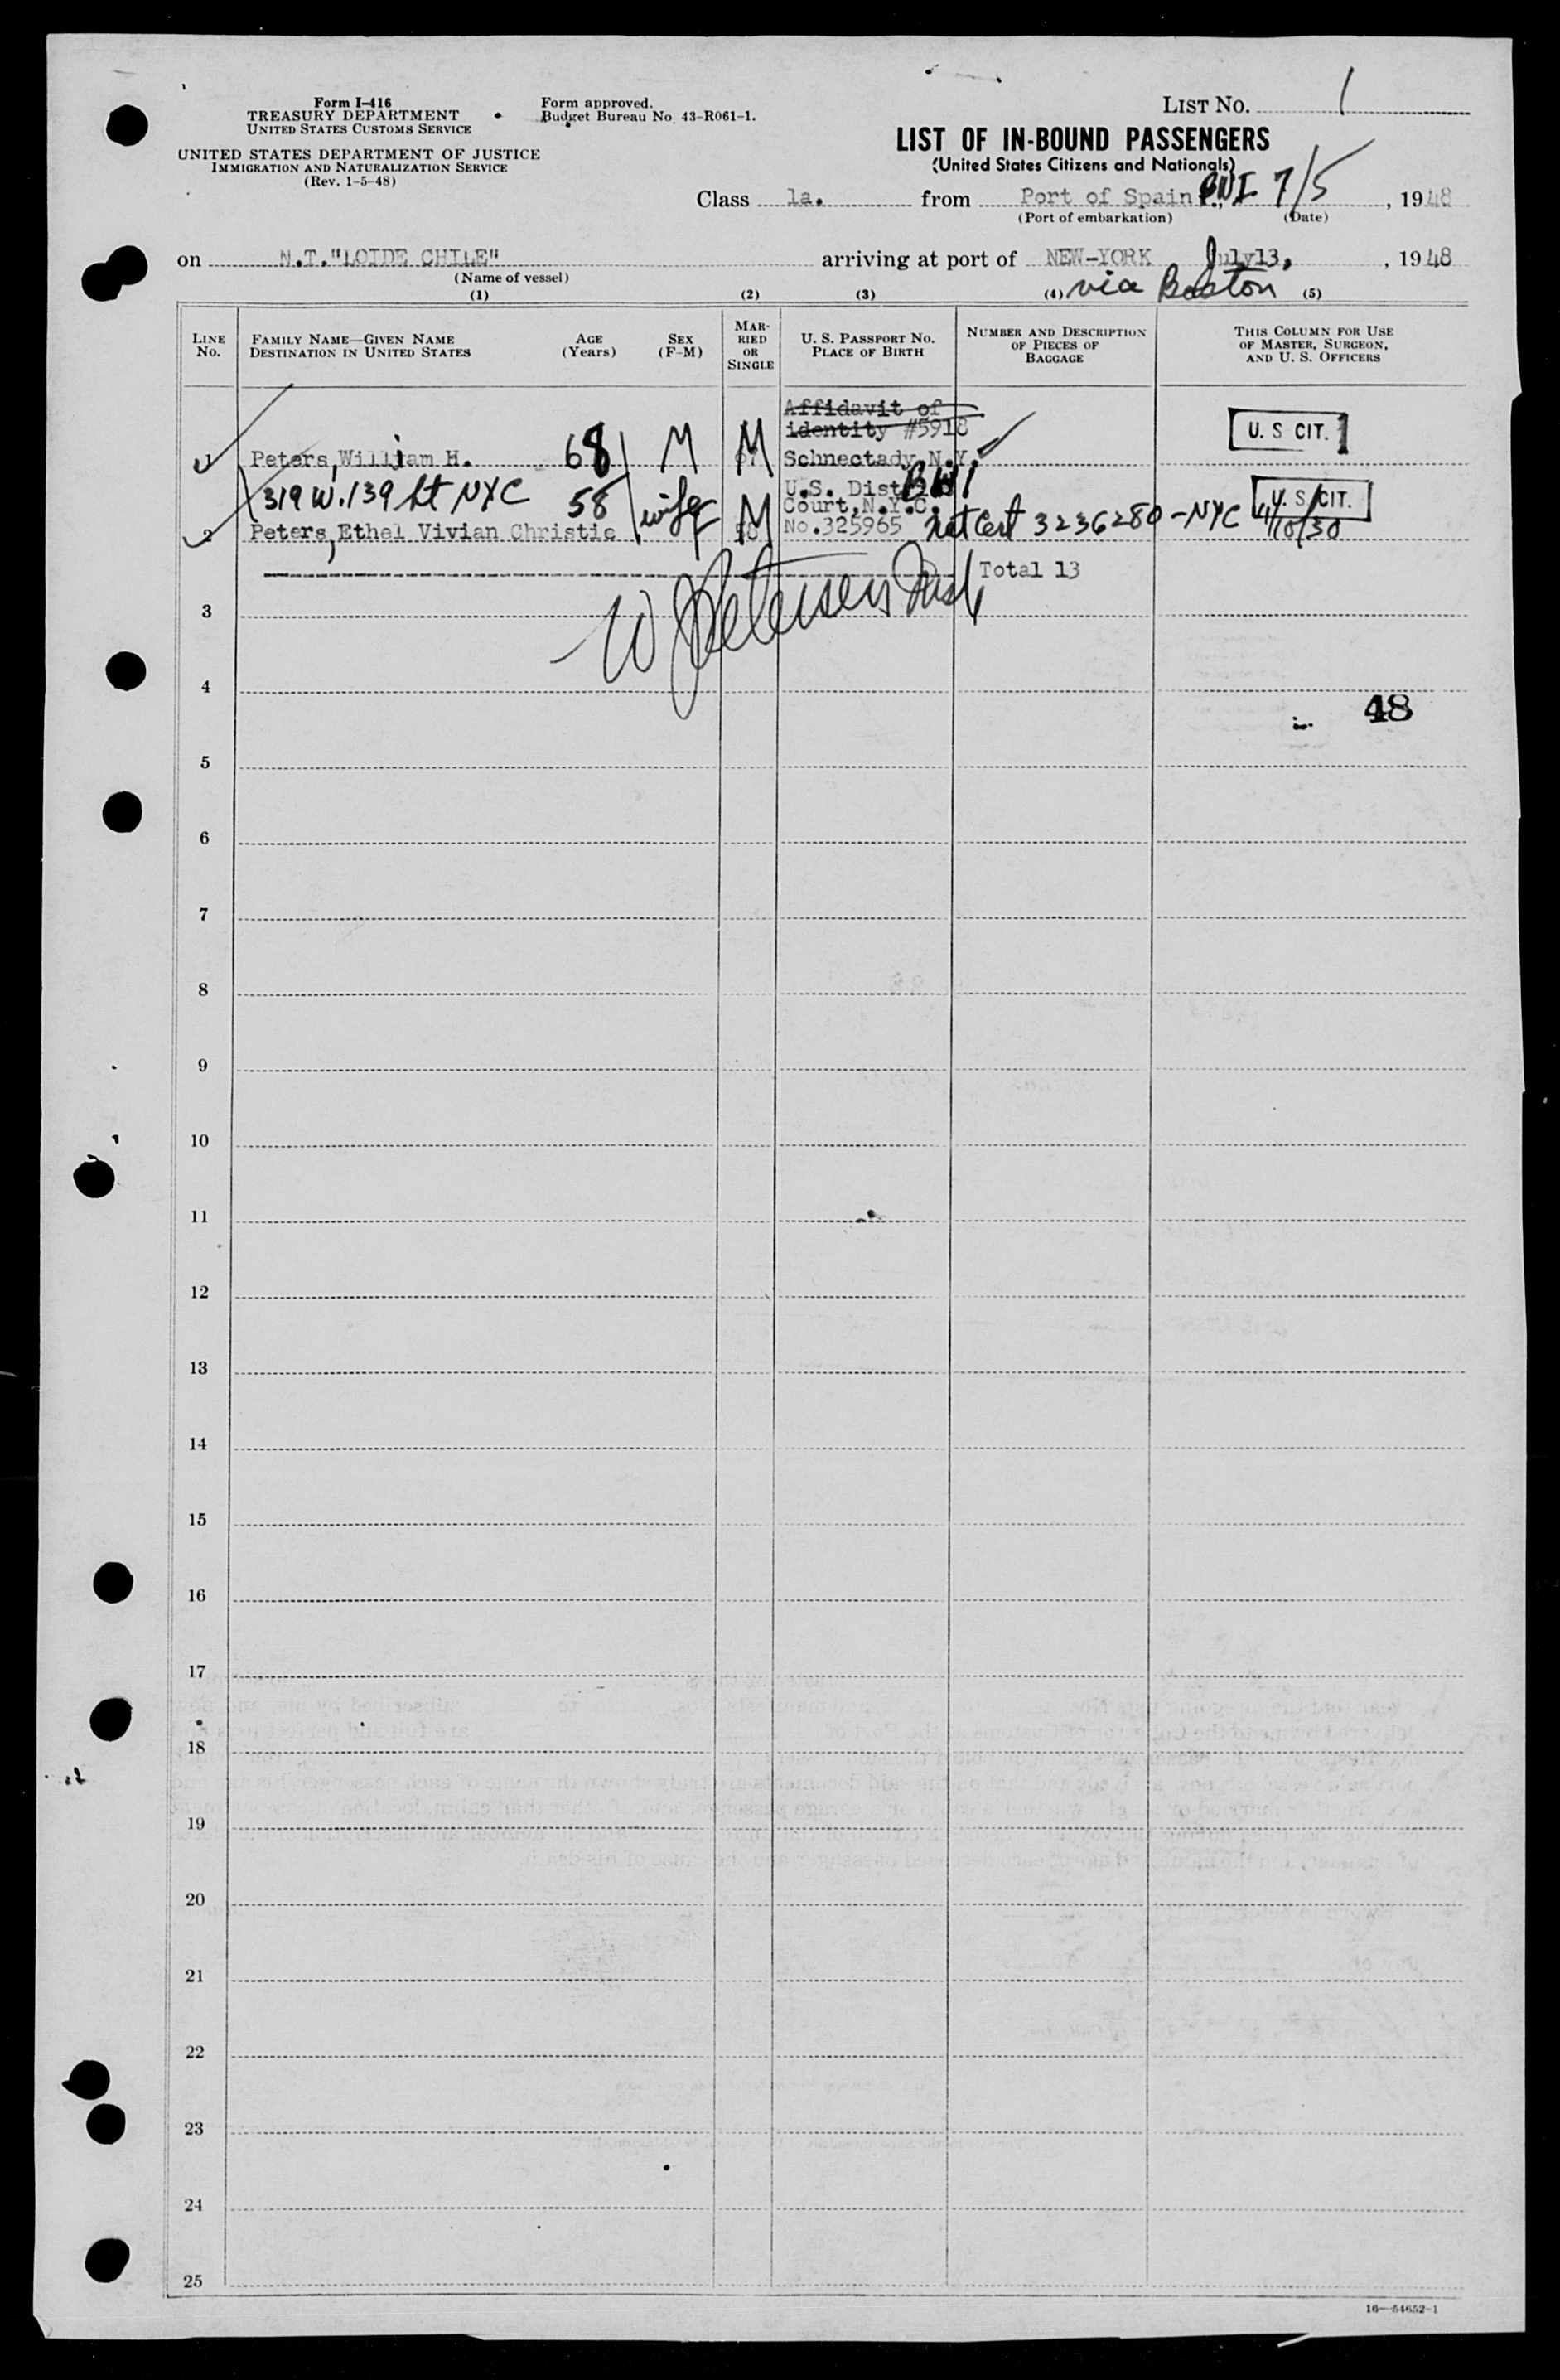 Form I-416
TREASURY DEPARTMENT
UNITED STATES CUSTOMS SERVICE
UNITED STATES DEPARTMENT OF JUSTICE
IMMIGRATION AND NATURALIZATION SERVICE
(Rev. 1-5-48)
Form approved.
Budget Bureau No. 43-R061-1.
LIST No. 1
LIST OF IN-BOUND PASSENGERS
(United States Citizens and Nationals)
Class 1a. from Port of Spain BWI 7/5, 1948
(Port of embarkation) (Date)
on N.T."LOIDE CHILE" arriving at port of NEW-YORK July 13, 1948
(Name of vessel) via Boston
(1) (2) (3) (4) (5)
LINE No. FAMILY NAME—GIVEN NAME DESTINATION IN UNITED STATES AGE (Years) SEX (F-M) MARRIED OR SINGLE U. S. PASSPORT No. PLACE OF BIRTH NUMBER AND DESCRIPTION OF PIECES OF BAGGAGE THIS COLUMN FOR USE OF MASTER, SURGEON, AND U. S. OFFICERS
Affidavit of
identity #5918 U. S CIT.
1 Peters, William H. 68 M M Schnectady, N.Y.
319 W. 139 St NYC 58 wife M U.S. Dist BWI U. S CIT.
Court, N.Y.C.
2 Peters, Ethel Vivian Christie No. 325965 Nat Cert 3236280-NYC 4/10/30
Total 13
3
4
48
5
6
7
8
9
10
11
12
13
14
15
16
17
18
19
20
21
22
23
24
25
16—54652-1